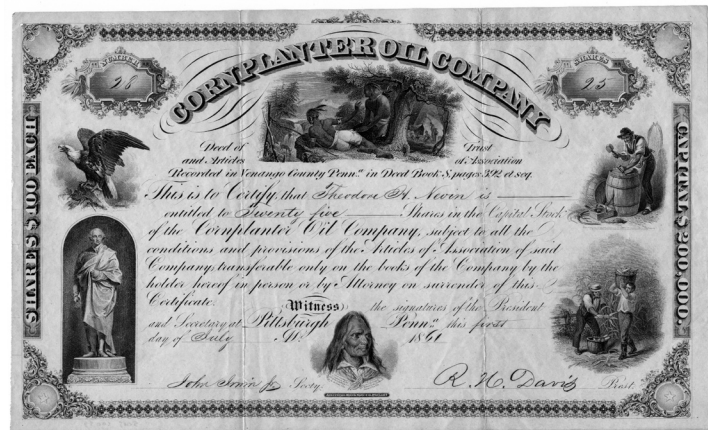 CORNPLANTER OIL COMPANY
NUMBER
28
SHARES
25
SHARES $100 EACH
CAPITAL $200,000.
Deed of Trust
and Articles of Association
Recorded in Venango County Penn.ª in Deed Book S, pages 592 et seq.
This is to Certify, that Theodore H. Nevin is
entitled to Twenty five Shares in the Capital Stock
of the Cornplanter Oil Company, subject to all the
conditions and provisions of the Articles of Association of said
Company, transferable only on the books of the Company by the
holder hereof in person or by Attorney on surrender of this
Certificate.
Witness the signatures of the President
and Secretary at Pittsburgh Penn.ª this first
day of July A.D. 1861
John Irwin Jr. Secty. R. H. Davis Prest.